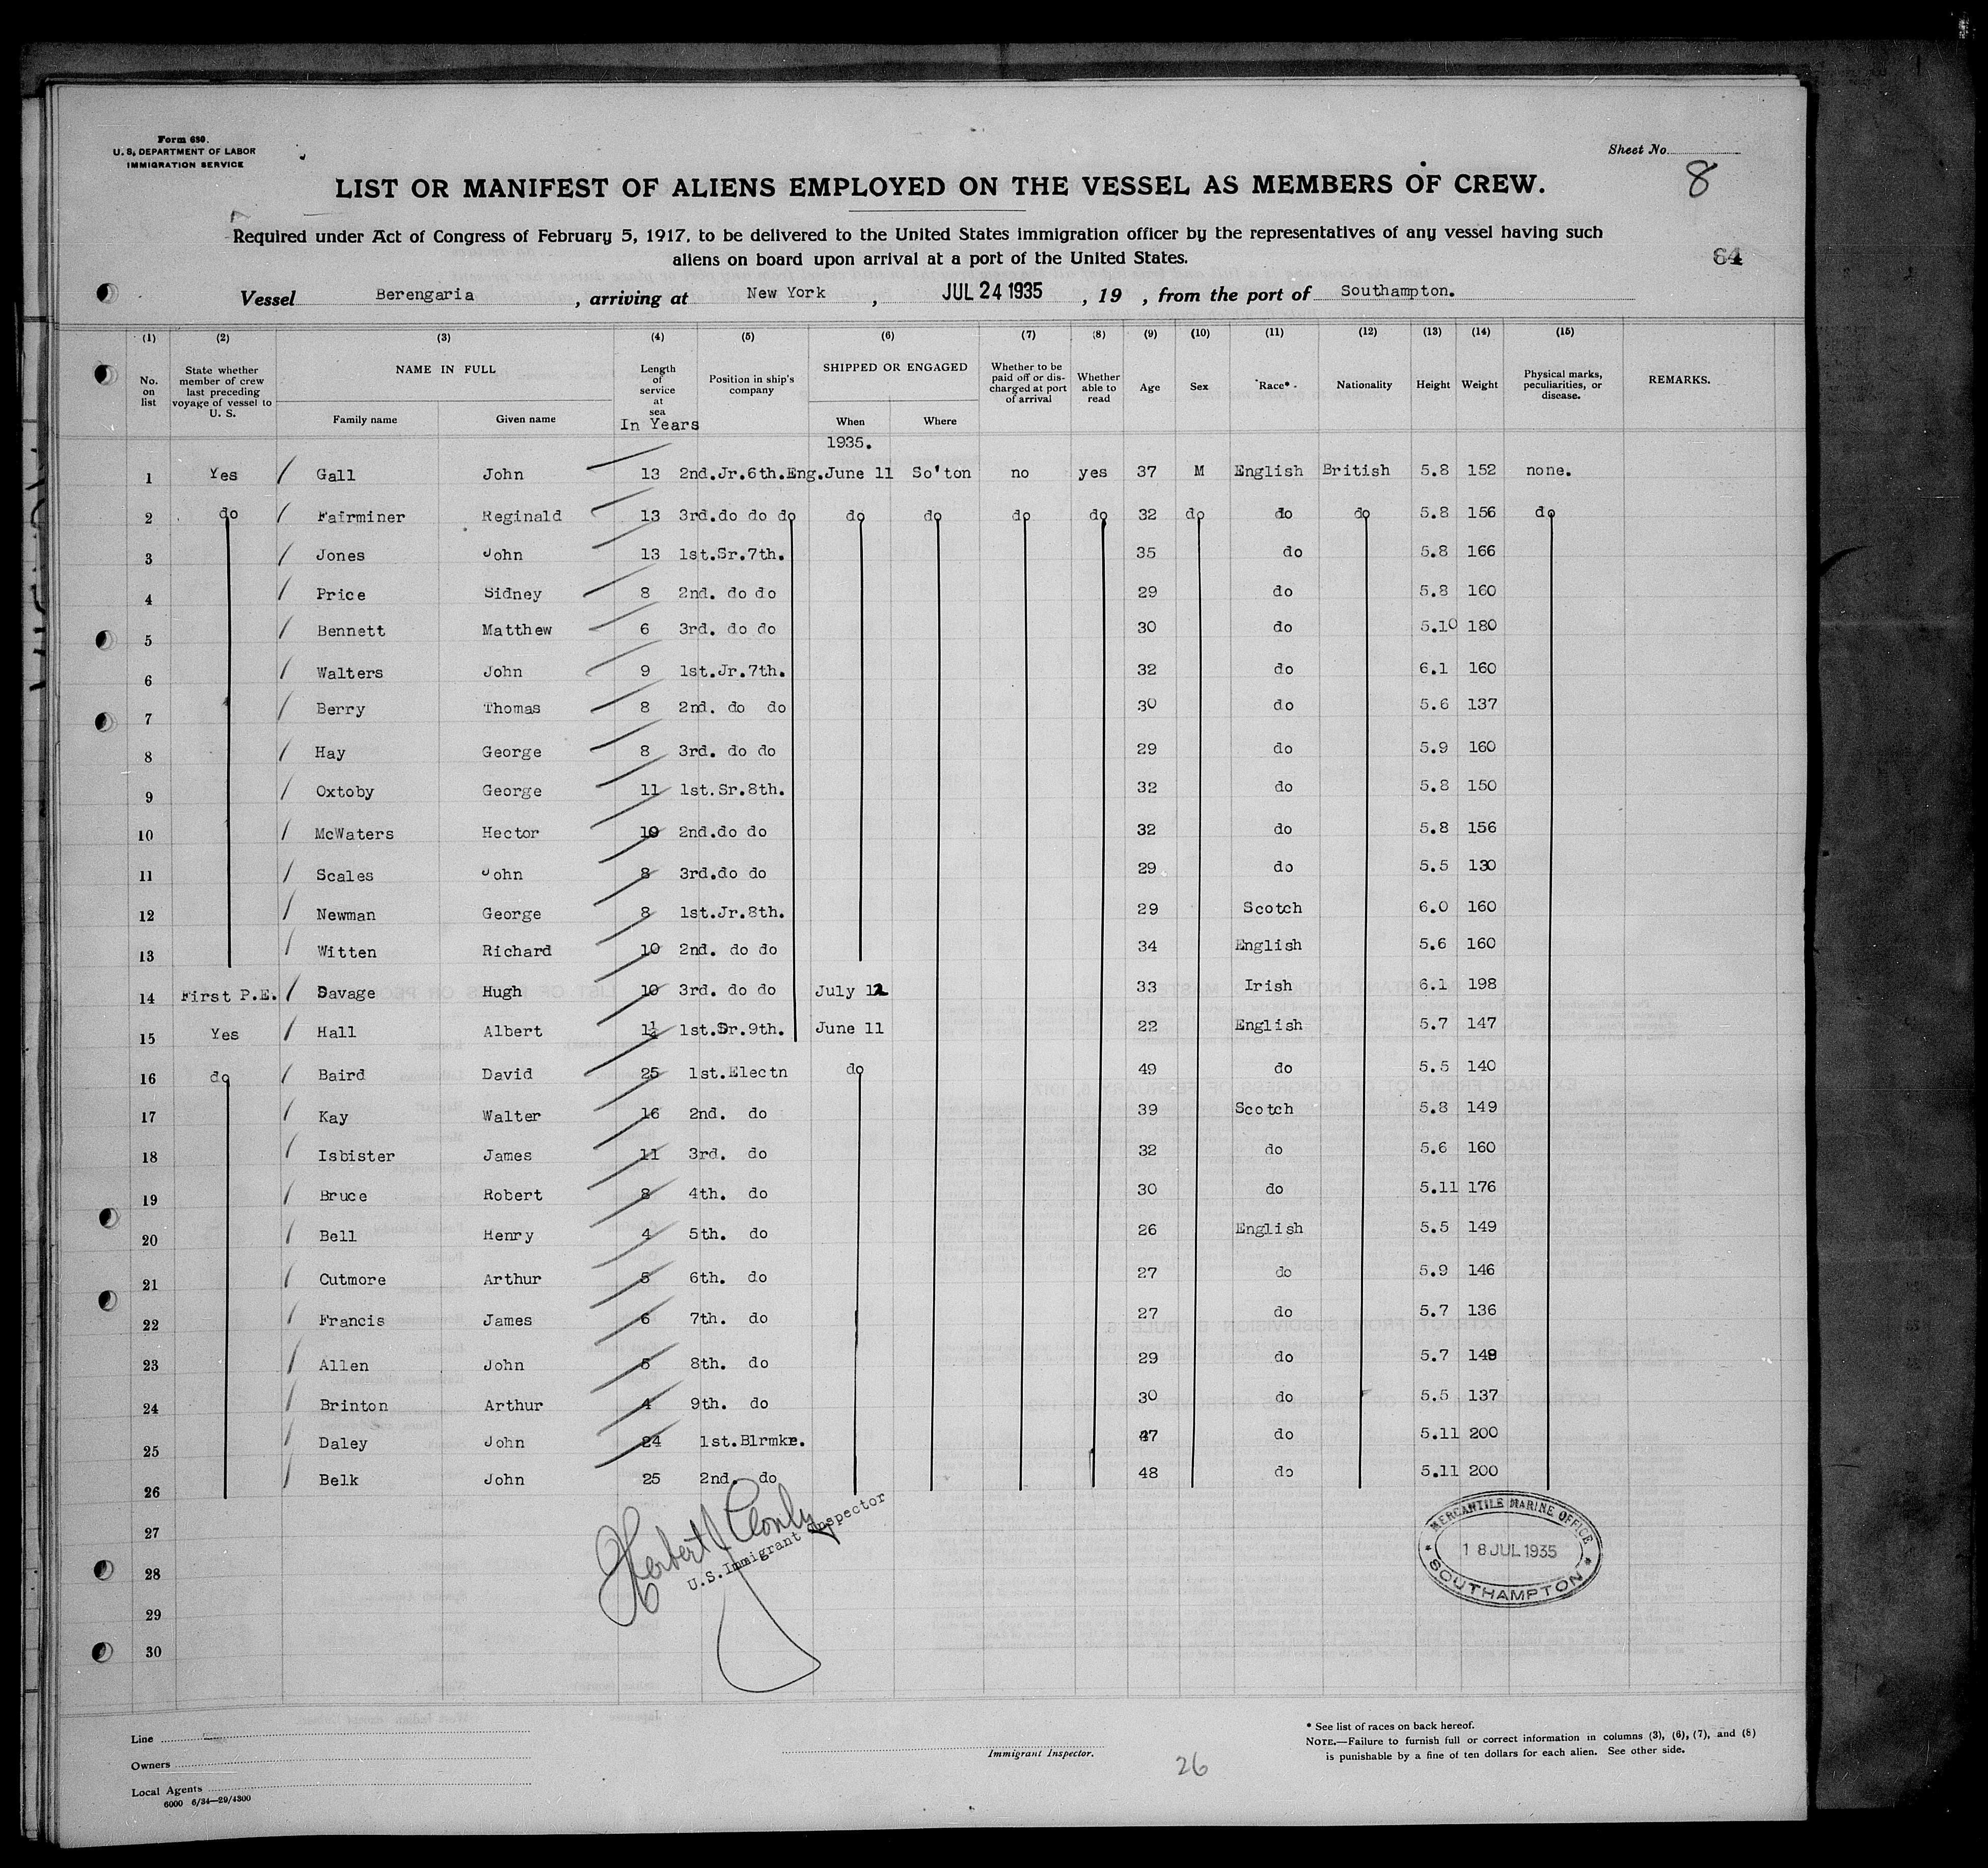 Form 680.
U. S. DEPARTMENT OF LABOR
IMMIGRATION SERVICE
Sheet No.
8
LIST OR MANIFEST OF ALIENS EMPLOYED ON THE VESSEL AS MEMBERS OF CREW.
Required under Act of Congress of February 5, 1917, to be delivered to the United States immigration officer by the representatives of any vessel having such
aliens on board upon arrival at a port of the United States.
84
Vessel Berengaria , arriving at New York , JUL 24 1935 , 19 , from the port of Southampton.
(1) (2) (3) (4) (5) (6) (7) (8) (9) (10) (11) (12) (13) (14) (15)
No. on list State whether member of crew last preceding voyage of vessel to U. S. NAME IN FULL Family name Given name Length of service at sea In Years Position in ship's company SHIPPED OR ENGAGED When Where Whether to be paid off or discharged at port of arrival Whether able to read Age Sex Race* Nationality Height Weight Physical marks, peculiarities, or disease. REMARKS.
1935.
1 Yes Gall John 13 2nd.Jr.6th.Eng. June 11 So'ton no yes 37 M English British 5.8 152 none.
2 do Fairminer Reginald 13 3rd.do do do do do do do 32 do do do 5.8 156 do
3 Jones John 13 1st.Sr.7th. 35 do 5.8 166
4 Price Sidney 8 2nd. do do 29 do 5.8 160
5 Bennett Matthew 6 3rd. do do 30 do 5.10 180
6 Walters John 9 1st.Jr.7th. 32 do 6.1 160
7 Berry Thomas 8 2nd. do do 30 do 5.6 137
8 Hay George 8 3rd. do do 29 do 5.9 160
9 Oxtoby George 11 1st.Sr.8th. 32 do 5.8 150
10 McWaters Hector 10 2nd.do do 32 do 5.8 156
11 Scales John 8 3rd.do do 29 do 5.5 130
12 Newman George 8 1st.Jr.8th. 29 Scotch 6.0 160
13 Witten Richard 10 2nd. do do 34 English 5.6 160
14 First P.E. Savage Hugh 10 3rd. do do July 12 33 Irish 6.1 198
15 Yes Hall Albert 1st.Sr.9th. June 11 22 English 5.7 147
16 do Baird David 25 1st.Electn do 49 do 5.5 140
17 Kay Walter 16 2nd. do 39 Scotch 5.8 149
18 Isbister James 11 3rd. do 32 do 5.6 160
19 Bruce Robert 8 4th. do 30 do 5.11 176
20 Bell Henry 4 5th. do 26 English 5.5 149
21 Cutmore Arthur 5 6th. do 27 do 5.9 146
22 Francis James 6 7th. do 27 do 5.7 136
23 Allen John 5 8th. do 29 do 5.7 149
24 Brinton Arthur 4 9th. do 30 do 5.5 137
25 Daley John 24 1st.Blrmkr. 47 do 5.11 200
26 Belk John 25 2nd. do 48 do 5.11 200
27
28
29
30
U.S.Immigrant Inspector
MERCANTILE MARINE OFFICE
18 JUL 1935
SOUTHAMPTON
Line
Owners
Local Agents
6000 6/34—29/4300
Immigrant Inspector.
26
* See list of races on back hereof.
NOTE.—Failure to furnish full or correct information in columns (3), (6), (7), and (8)
is punishable by a fine of ten dollars for each alien. See other side.